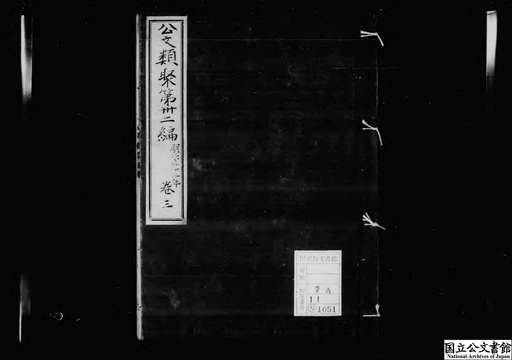 公文類聚第卅二編
明治四十一年
巻三
2 A
11
1051
国立公文書館
National Archives of Japan